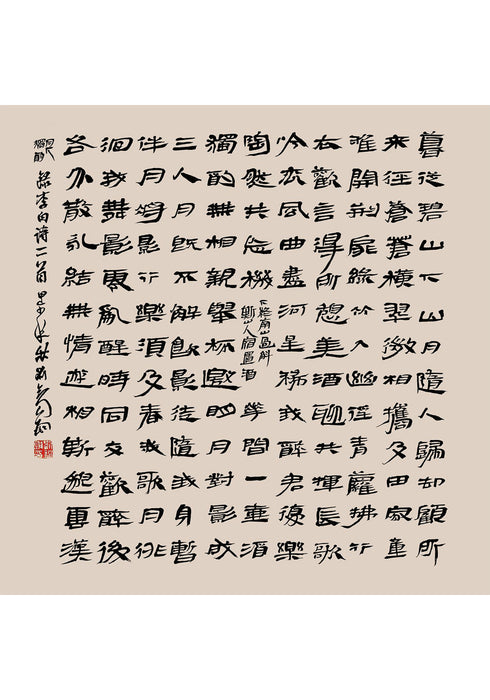 暮從碧山下山月隨人歸却顧所
來徑蒼蒼橫翠微相攜及田家童
稚開荆扉綠竹入幽徑青蘿拂行
衣歡言得所憩美酒聊共揮長歌
吟松風曲盡河星稀我醉君復樂
陶然共忘機
下終南山過斛
斯山人宿置酒
花間一壺酒
獨酌無相親舉杯邀明月對影成
三人月既不解飲影徒隨我身暫
伴月將影行樂須及春我歌月徘
徊我舞影零亂醒時同交歡醉後
各分散永結無情遊相期邈雲漢
月下獨酌
錄李白诗二首